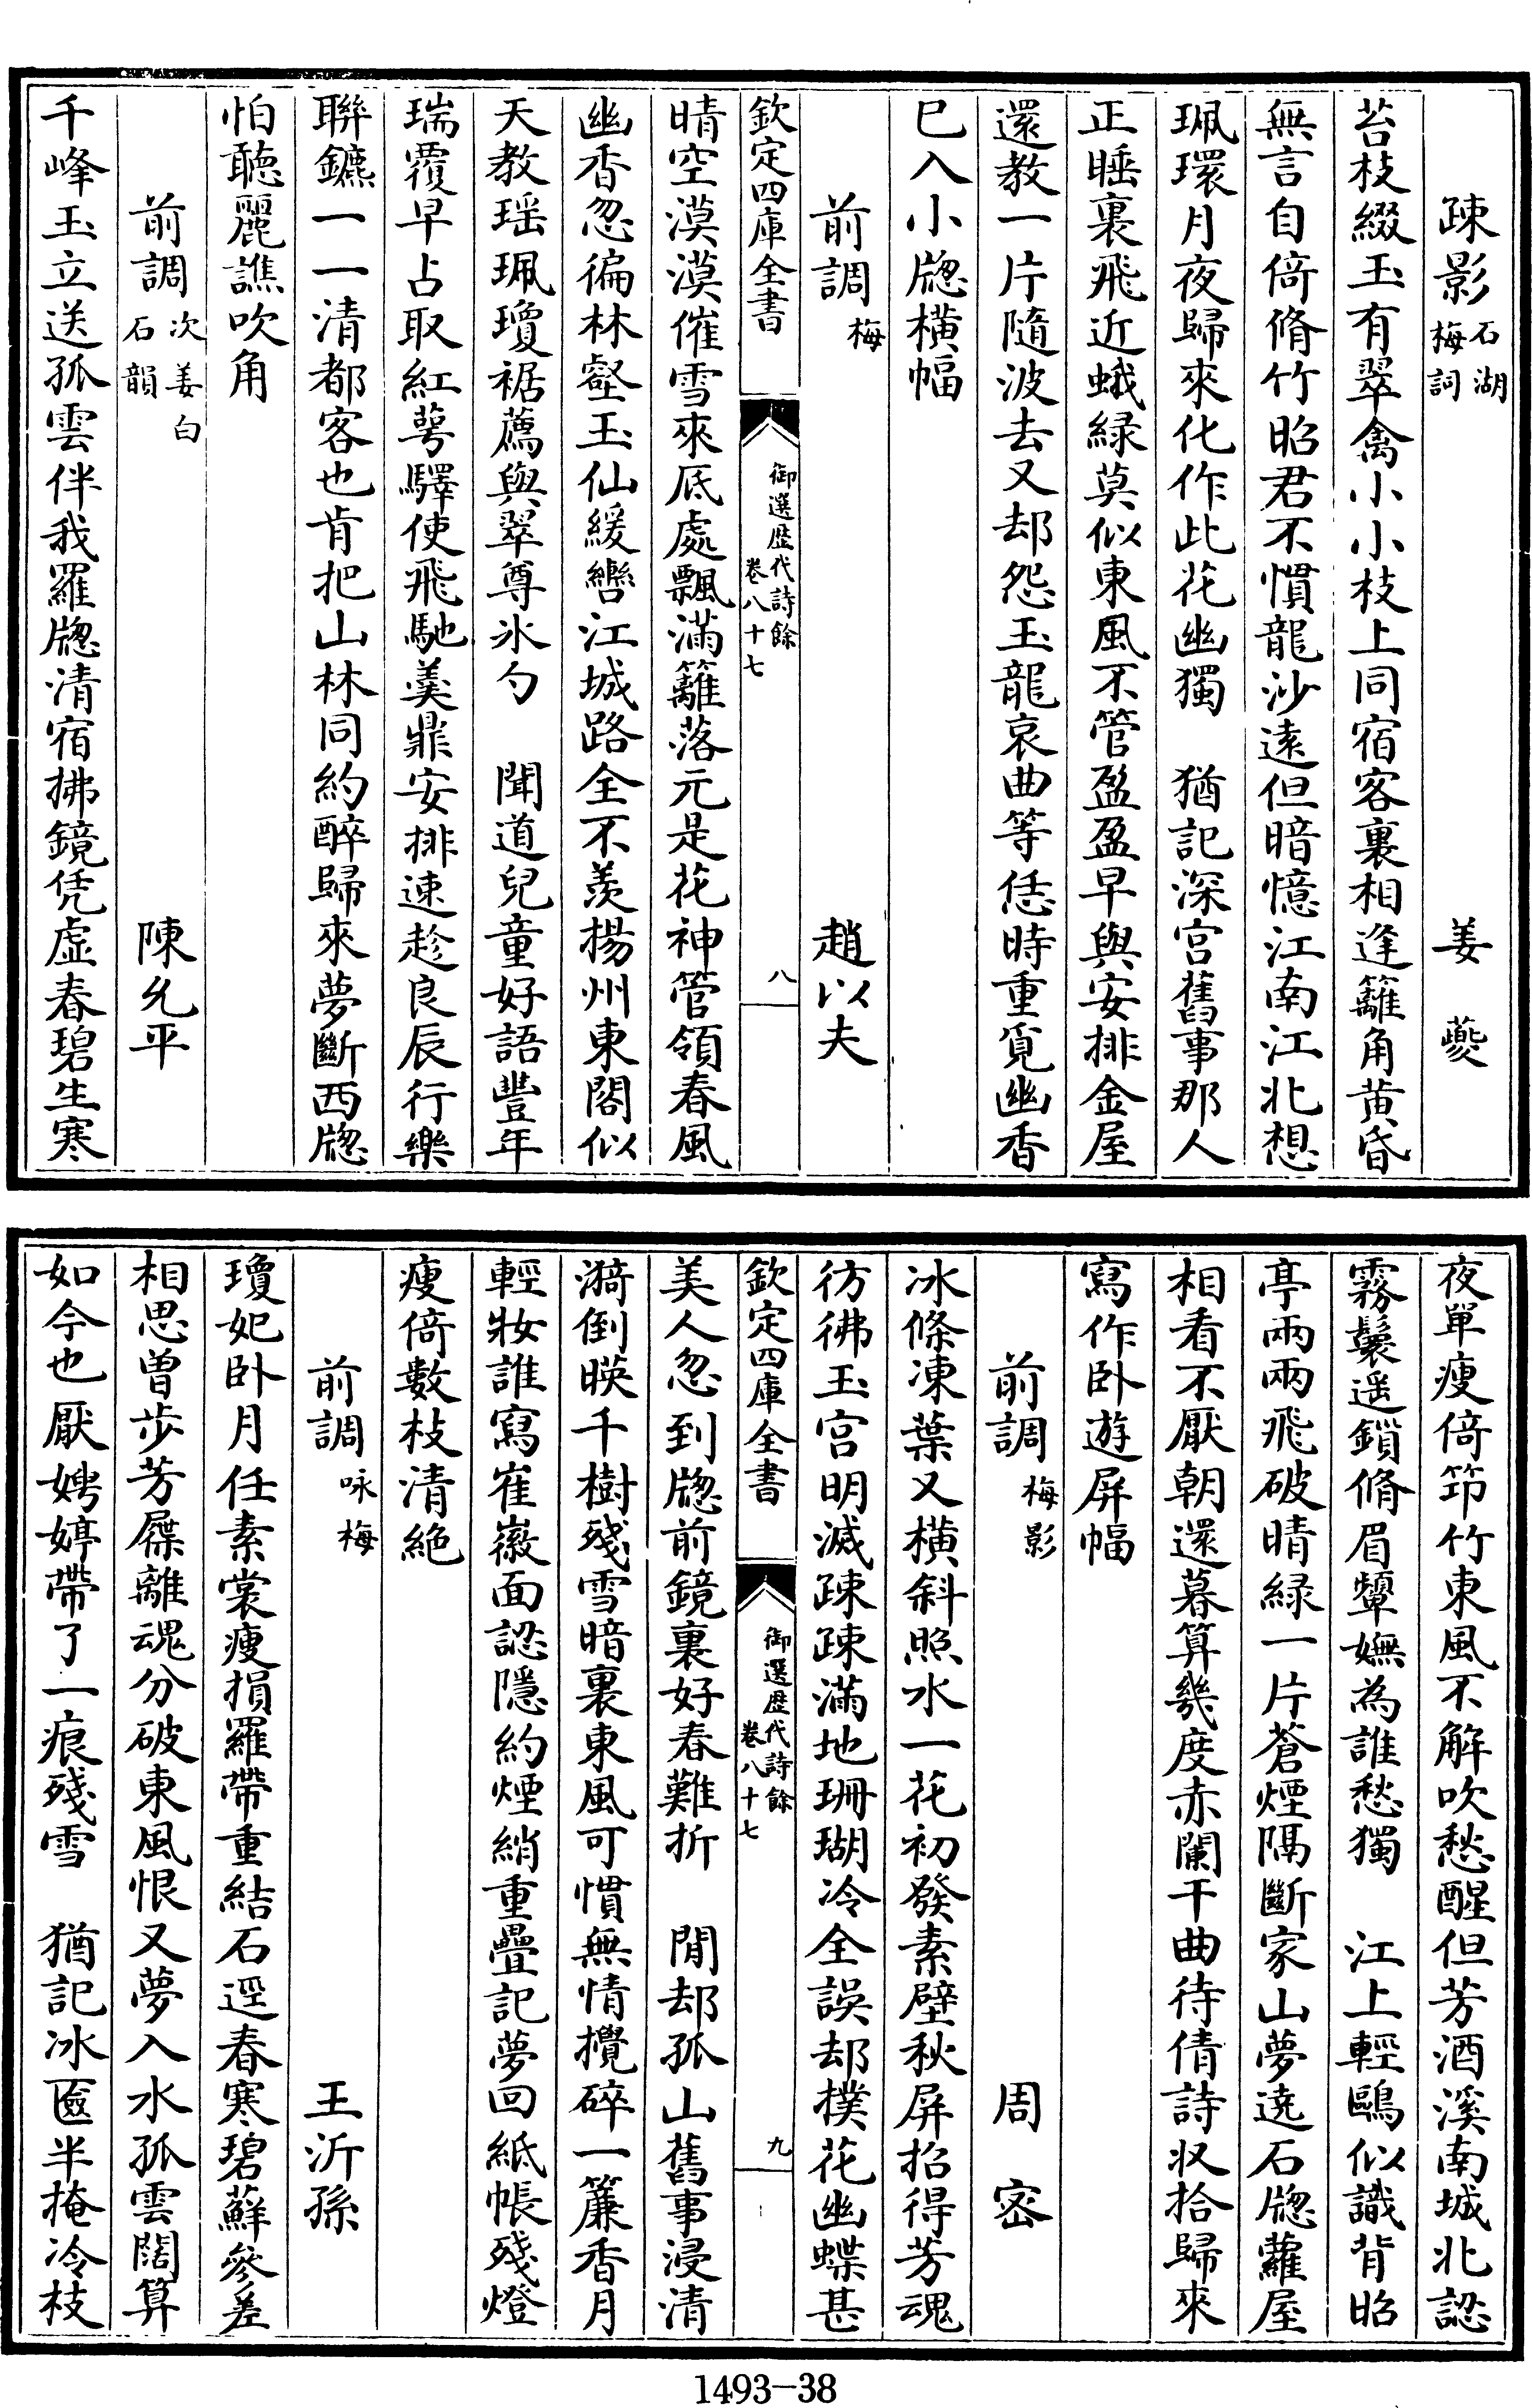 疎影石湖梅詞　姜　夔
苔枝綴玉有翠禽小小枝上同宿客裏相逢籬角黄昏
無言自倚脩竹昭君不慣龍沙遠但暗憶江南江北想
珮環月夜歸來化作此花幽獨　猶記深宫舊事那人
正睡裏飛近蛾緑莫似東風不管盈盈早與安排金屋
還教一片隨波去又却怨玉龍哀曲等恁時重覓幽香
已入小牕横幅
前調梅　趙以夫
欽定四庫全書　御選歴代詩餘卷八十七　八
晴空漠漠催雪來底處飄滿籬落元是花神管領春風
幽香忽徧林壑玉仙緩轡江城路全不羨揚州東閣似
天教瑶珮瓊裾薦與翠尊氷勺　聞道兒童好語豐年
瑞覆早占取紅萼驛使飛馳羮鼎安排速趁良辰行樂
聯鑣一一清都客也肯把山林同約醉歸來夢斷西牕
怕聽麗譙吹角
前調次姜白石韻　陳允平
千峰玉立送孤雲伴我羅牕清宿拂鏡凭虚春碧生寒
夜單瘦倚笻竹東風不解吹愁醒但芳酒溪南城北認
霧鬟遥鎖脩眉顰嫵為誰愁獨　江上輕鷗似識背昭
亭兩兩飛破晴緑一片蒼煙隔斷家山夢遶石牕蘿屋
相看不厭朝還暮算幾度赤闌干曲待倩詩收拾歸來
寫作卧遊屏幅
前調梅影　周　密
冰條凍葉又横斜照水一花初發素壁秋屏招得芳魂
彷彿玉宫明滅疎疎滿地珊瑚冷全誤却撲花幽蝶甚
欽定四庫全書　御選歴代詩餘卷八十七　九
美人忽到牕前鏡裏好春難折　閒却孤山舊事浸清
漪倒暎千樹殘雪暗裏東風可慣無情攪碎一簾香月
輕妝誰寫崔徽面認隱約煙綃重疊記夢回紙帳殘燈
瘦倚數枝清絶
前調咏梅　王沂孫
瓊妃卧月任素裳瘦損羅帶重結石逕春寒碧蘚參差
相思曽步芳屧離魂分破東風恨又夢入水孤雲闊算
如今也厭娉婷帶了一痕殘雪　猶記冰匳半掩冷枝
1493-38